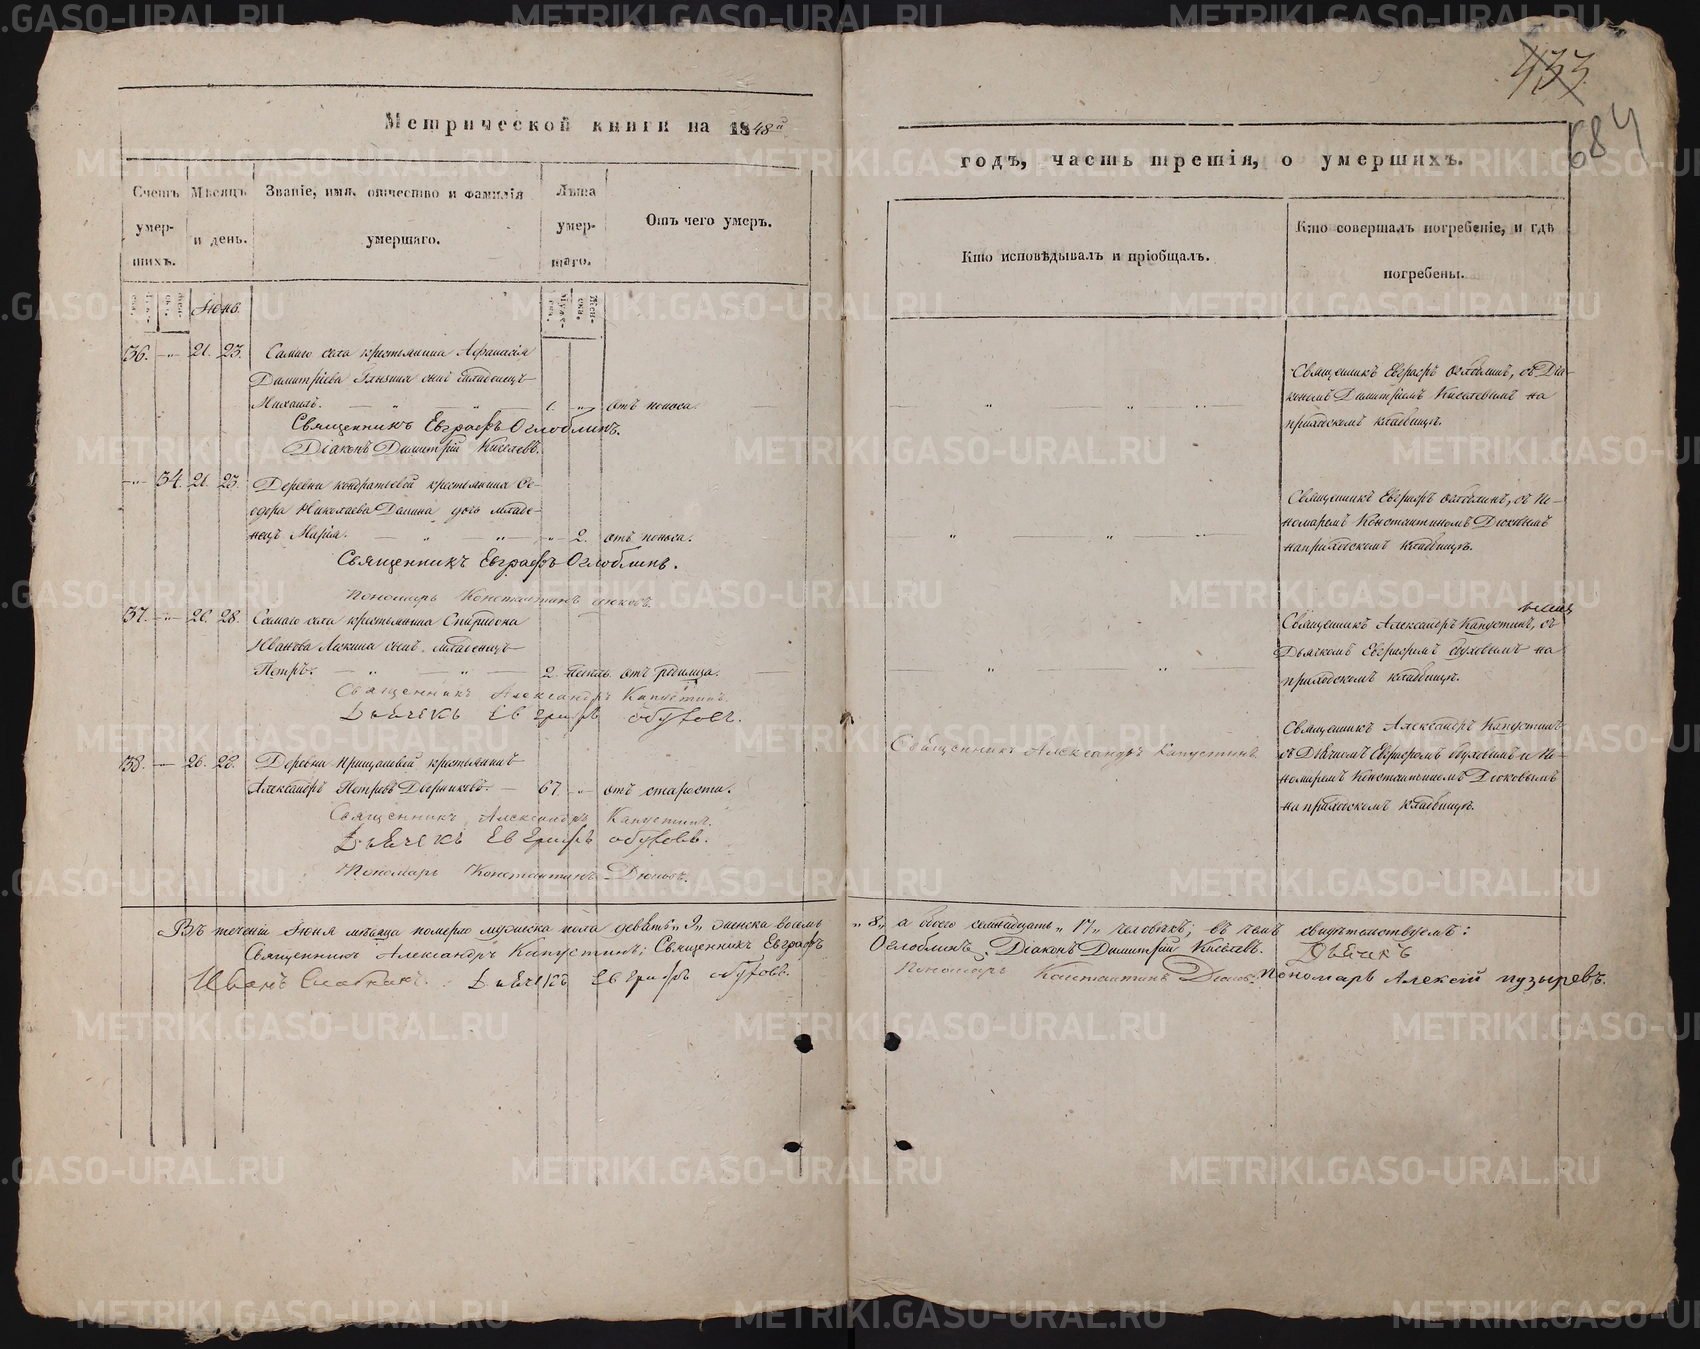 433.
684
Метрической книги на 1848й
годъ, часть третія, о умершихъ.
Счетъ умершихъ.
Мѣсяцъ и день.
Званіе, имя, отчество и фамилія умершаго.
Лѣта умершаго.
Отъ чего умеръ.
Кто исповѣдывалъ и пріобщалъ.
Кто совершалъ погребеніе, и гдѣ погребены.
Іюнь.
36. -„- 21. 23. Самаго села крестьянина Афанасія
Димитріева сынъ младенецъ
Михаилъ. — „ — „ — 1. „ отъ поноса.
Священникъ Евграфъ Оглоблинъ.
Діаконъ Димитрій Киселевъ.
Священникъ Евграфъ Оглоблинъ, съ Діа-
кономъ Димитріемъ Киселевымъ на
приходскомъ кладбищѣ.
-„- 34. 21. 23. Деревни Кондратьевой крестьянина Ѳе-
одора Николаева дочь младе-
нецъ Марія. — „ — „ — „ 2. отъ поноса.
Священникъ Евграфъ Оглоблинъ.
Пономарь Константинъ Дюковъ.
Священникъ Евграфъ Оглоблинъ, съ По-
номаремъ Константиномъ Дюковымъ
на приходскомъ кладбищѣ.
37. -„- 26. 28. Самаго села крестьянина Спиридона
Иванова сынъ младенецъ
Петръ. — „ — „ — 2. недѣль отъ родимца.
Священникъ Александръ Капустинъ.
Дьячекъ Евграфъ Обуховъ.
Священникъ Александръ Капустинъ, съ
Дьячкомъ Евграфомъ Обуховымъ на
приходскомъ кладбищѣ.
38. — 26. 28. Деревни крестьянинъ
Александръ Петровъ Дворниковъ. — 67 „ отъ старости.
Священникъ Александръ Капустинъ.
Дьячекъ Евграфъ Обуховъ.
Пономарь Константинъ Дюковъ.
Священникъ Александръ Капустинъ.
Священникъ Александръ Капустинъ
съ Дьячкомъ Евграфомъ Обуховымъ и По-
номаремъ Константиномъ Дюковымъ
на приходскомъ кладбищѣ.
Въ теченіи Іюня мѣсяца померло мужеска пола девять „9„ женска восемь
„8„ а обоего семнадцать „17„ человѣкъ; въ чемъ свидѣтельствуемъ:
Священникъ Александръ Капустинъ; Священникъ Евграфъ
Оглоблинъ. Діаконъ Димитрій Киселевъ. Дьячекъ
Иванъ Дьячекъ Евграфъ Обуховъ.
Пономарь Константинъ Дюковъ. Пономарь Алексій Пузыревъ.
METRIKI.GASO-URAL.RU